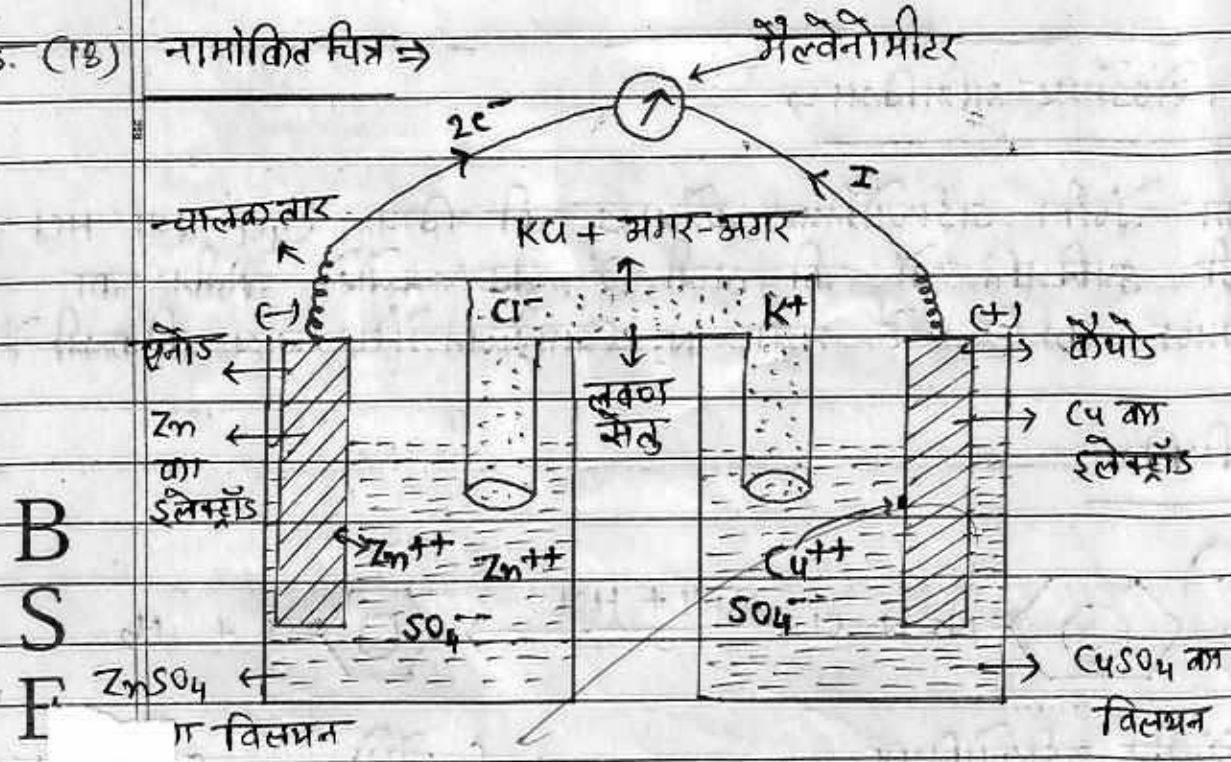 (18) नामोकित चित्र ⇒
गैल्वेनोमीटर
2e⁻
I
चालक तार
KCl + अगर-अगर
Cl⁻
K+
(-)
(+)
एनोड
कैथोड
लवण
सेतु
Zn
का
इलेक्ट्रॉड
Cu का
इलेक्ट्रॉड
Zn++
Zn++
Cu++
SO₄--
SO₄--
ZnSO₄
विलयन
CuSO₄ का
विलयन
B
S
E